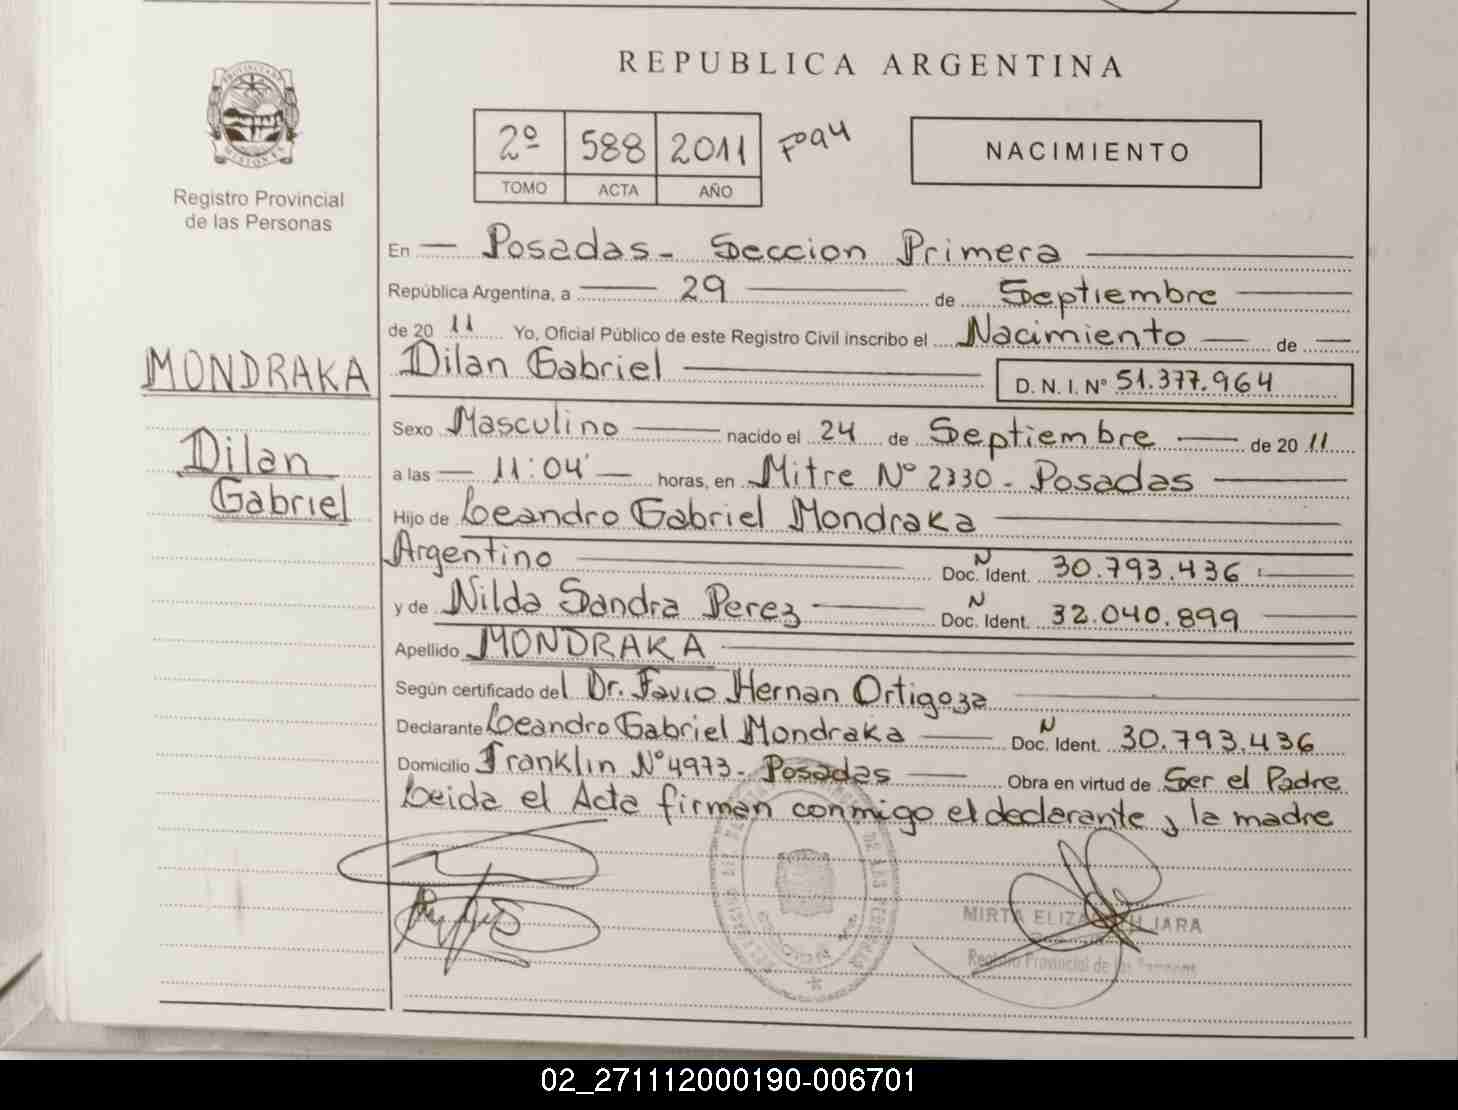 REPUBLICA ARGENTINA
PROVINCIA DE MISIONES
Registro Provincial
de las Personas
2º 588 2011 Fº 94
TOMO ACTA AÑO
NACIMIENTO
En Posadas - Seccion Primera
República Argentina, a 29 de Septiembre
de 20 11 Yo, Oficial Público de este Registro Civil inscribo el Nacimiento de
MONDRAKA
Dilan
Gabriel
Dilan Gabriel D. N. I. Nº 51.377.964
Sexo Masculino nacido el 24 de Septiembre de 20 11
a las 11:04' horas, en Mitre Nº 2330 - Posadas
Hijo de Leandro Gabriel Mondraka
Argentino Doc. N Ident. 30.793.436
y de Nilda Sandra Perez Doc. N Ident. 32.040.899
Apellido MONDRAKA
Según certificado del Dr. Favio Hernan Ortigoza
Declarante Leandro Gabriel Mondraka Doc. N Ident. 30.793.436
Domicilio Franklin Nº 4973 - Posadas Obra en virtud de Ser el Padre
Leida el Acta firman conmigo el declarante y la madre
MIRTA JARA
Registro Provincial de las Personas
02_271112000190-006701